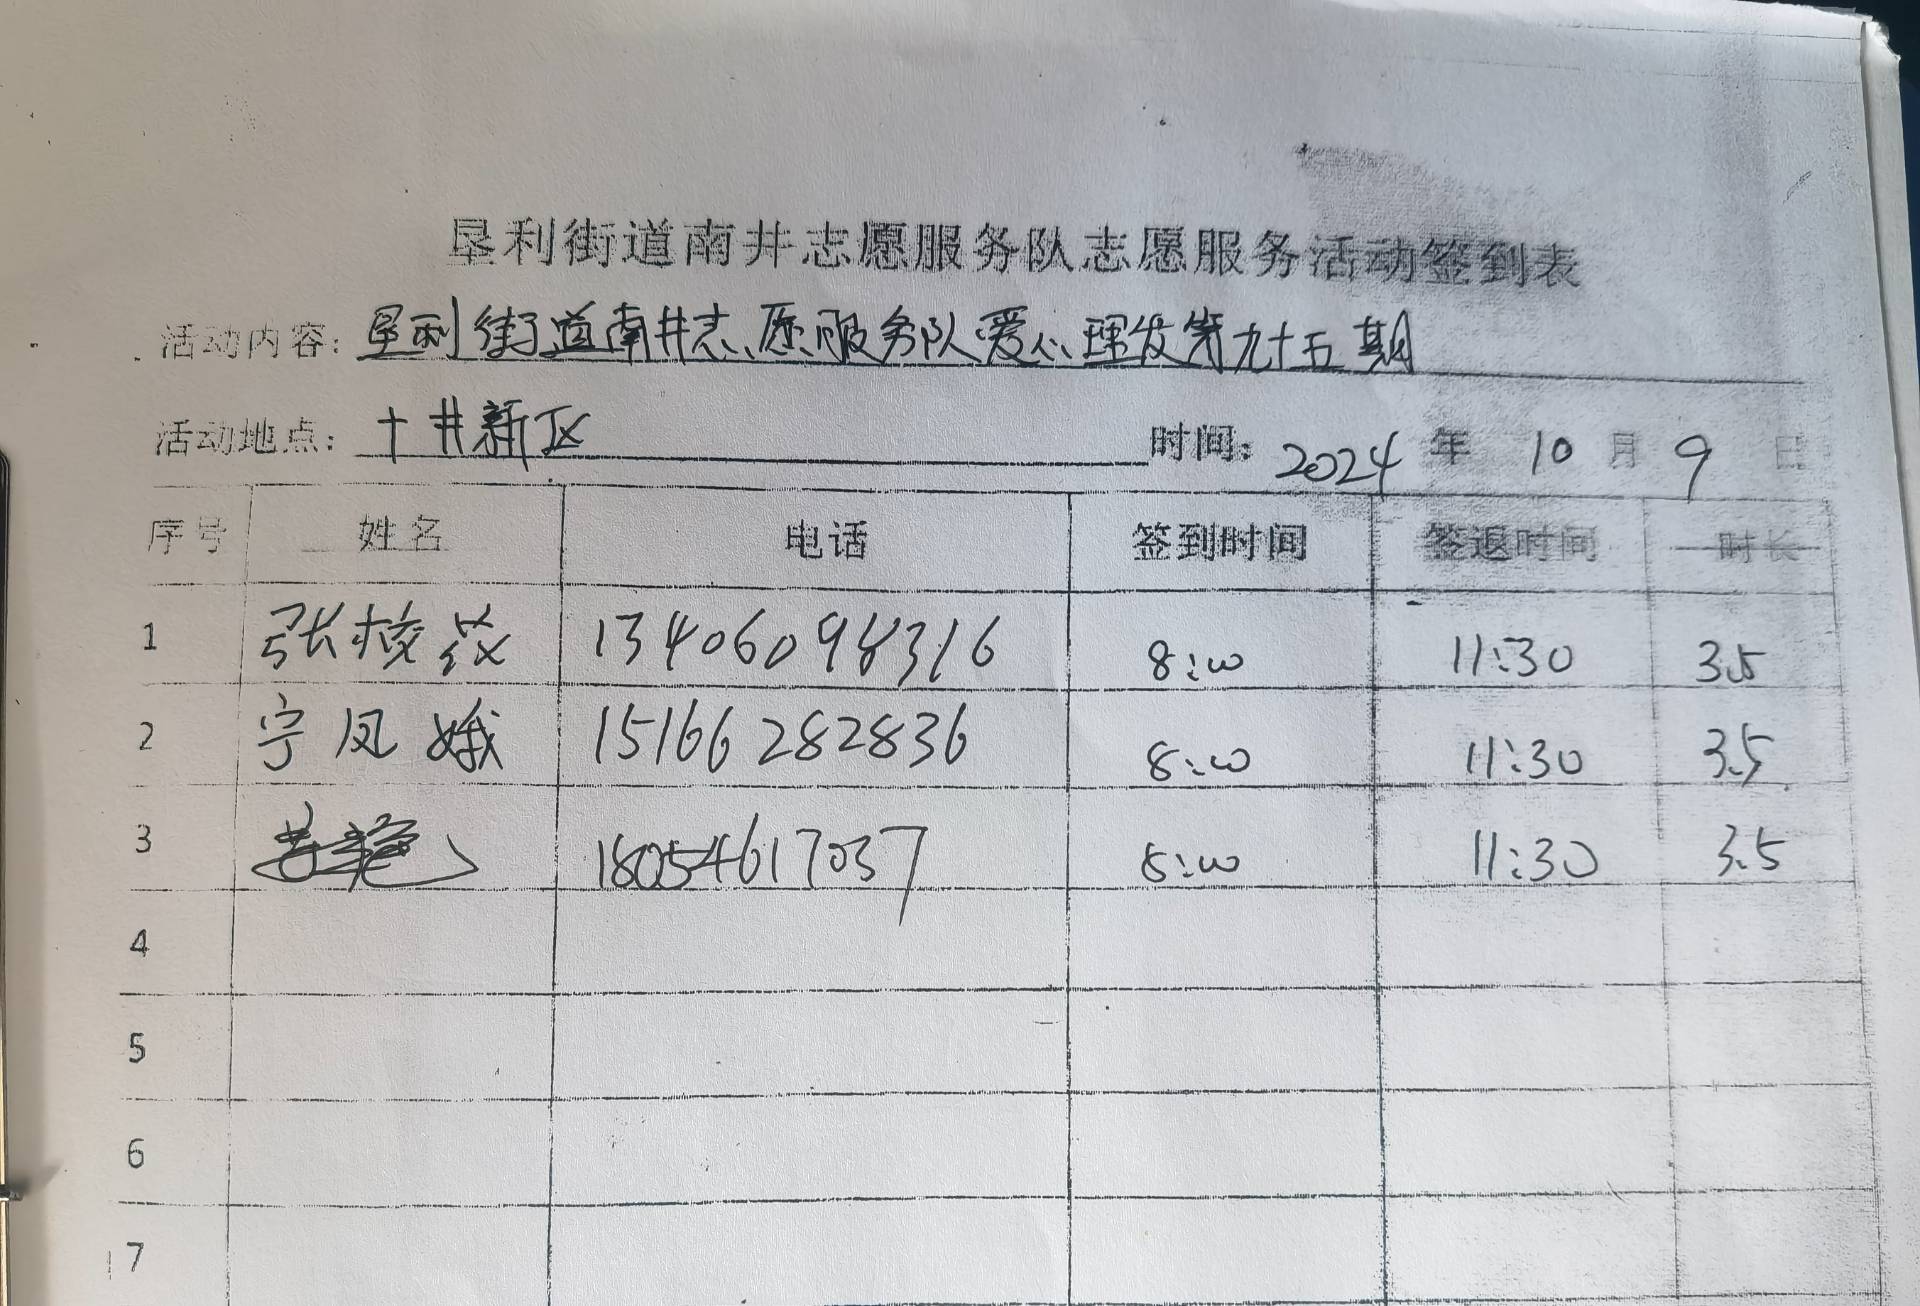 垦利街道南井志愿服务队志愿服务活动签到表
活动内容: 垦利街道南井志愿服务队爱心理发第九十五期
活动地点: 十井新区 时间: 2024 年 10 月 9 日
序号 姓名 电话 签到时间 签退时间 时长
1 张 13406098316 8:00 11:30 3.5
2 宁凤娥 15166282836 8:00 11:30 3.5
3 18054617037 8:00 11:30 3.5
4
5
6
7